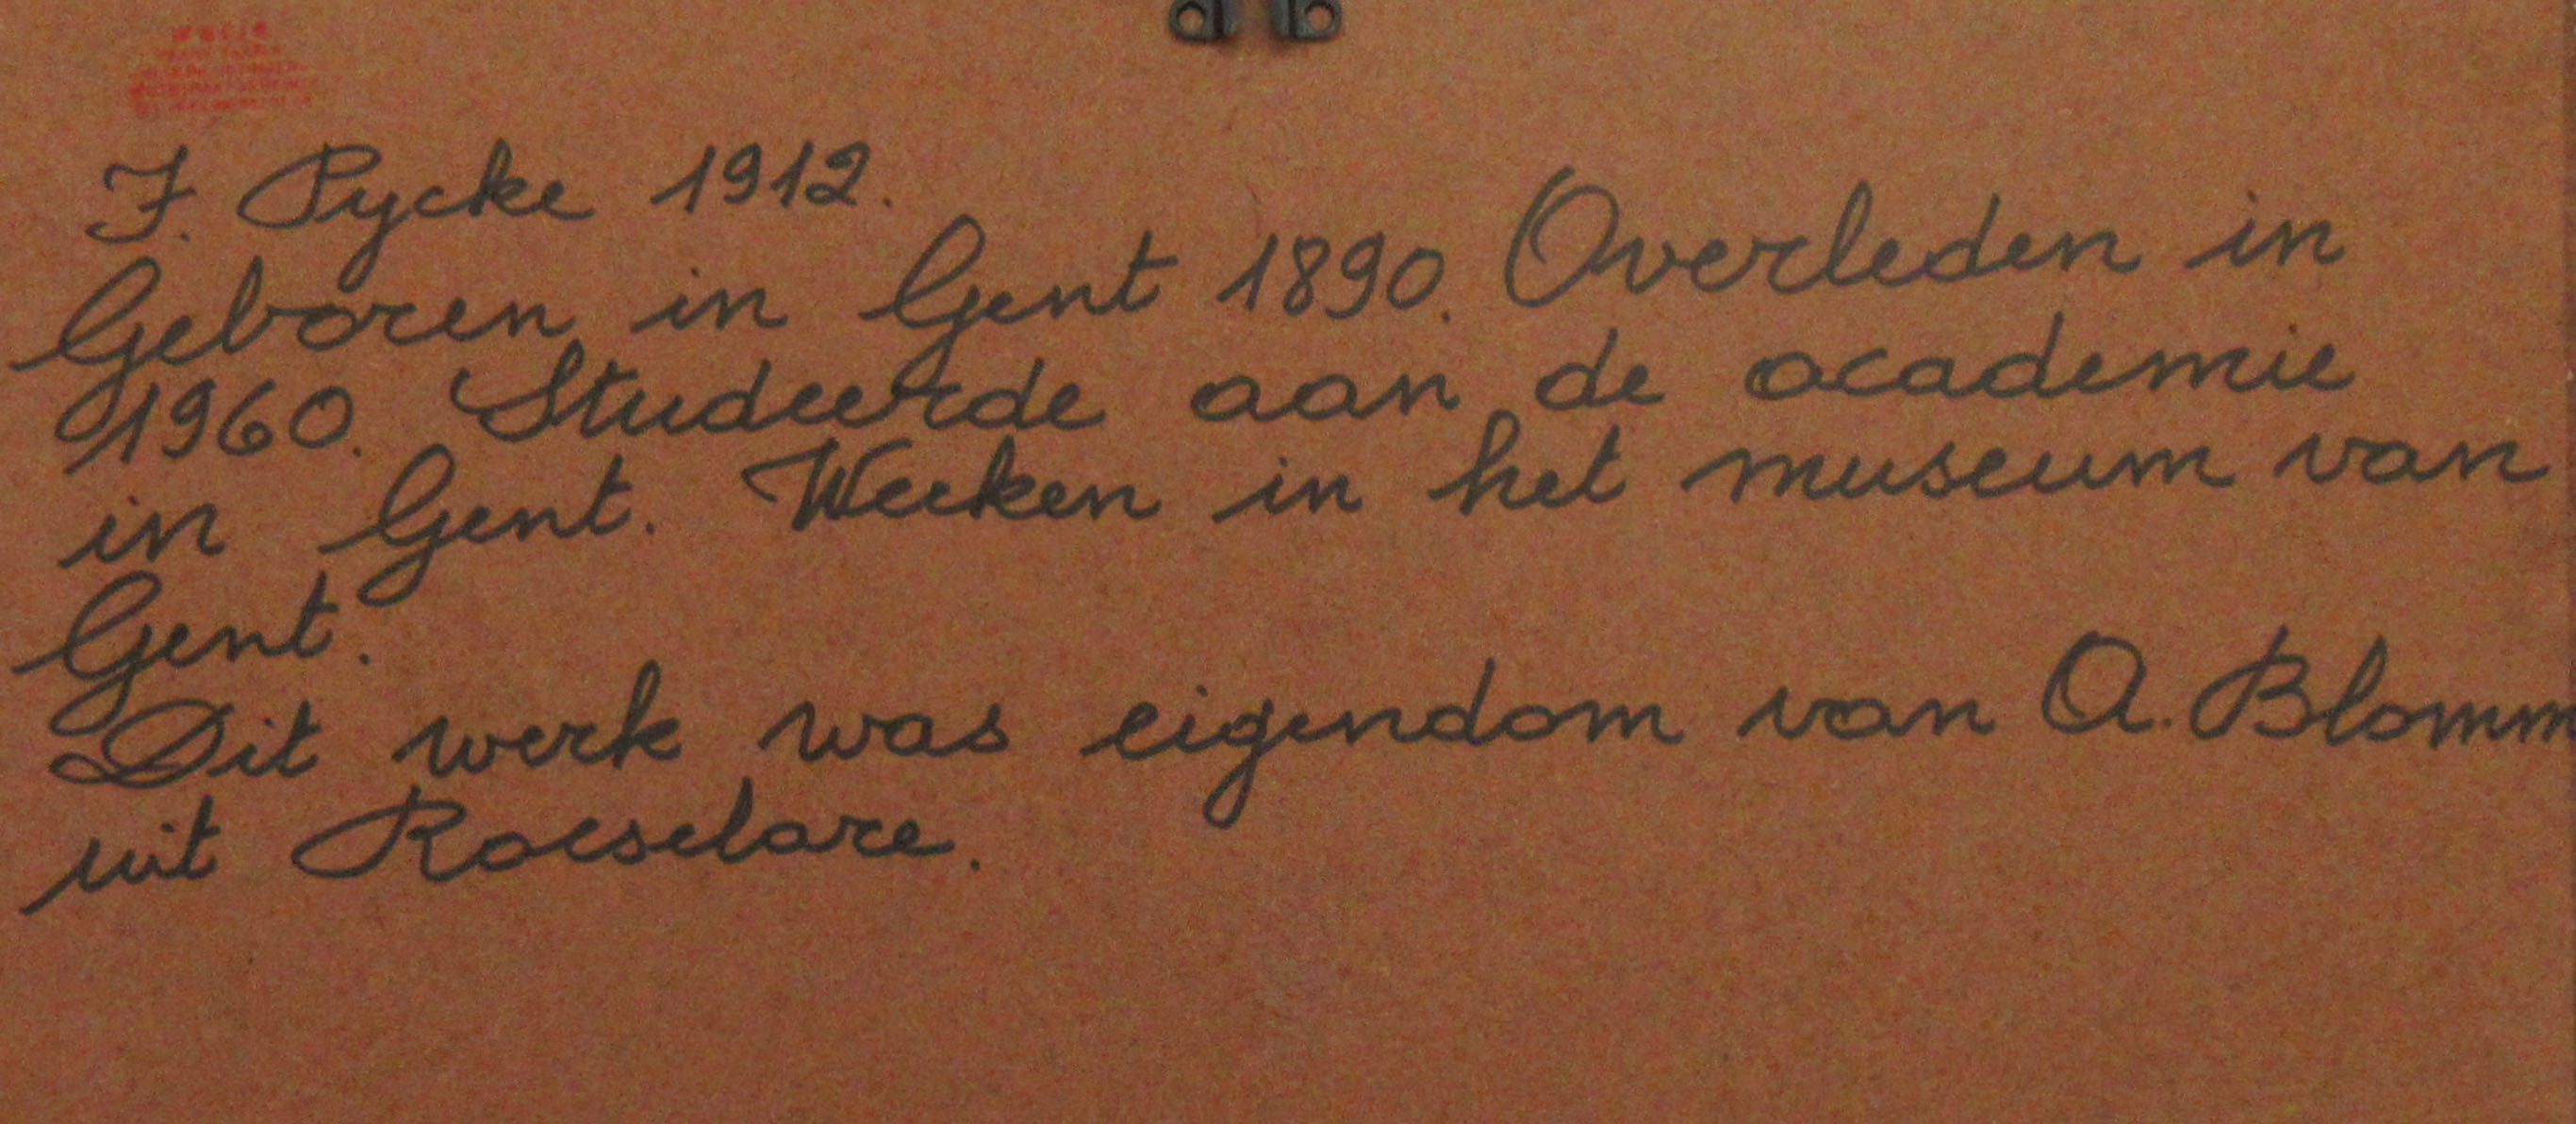 J. Pycke 1912.
Geboren in Gent 1890. Overleden in
1960. Studeerde aan de academie
in Gent. Werken in het museum van
Gent.
Dit werk was eigendom van A. Blomm
uit Roeselare.